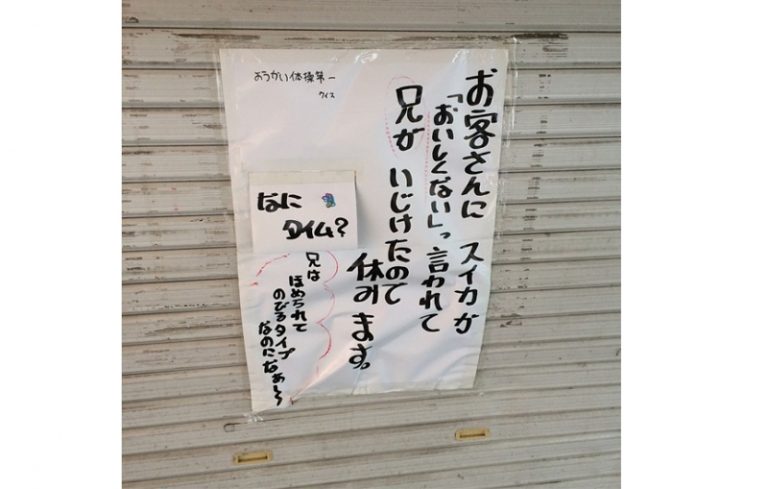 お客さんに スイカが
「おいしくない」って言われて
兄が いじけたので
休みます。
ようかい体操第一
クイズ
なに
タイム?
兄は
ほめられて
のびるタイプ
なのになぁ〜